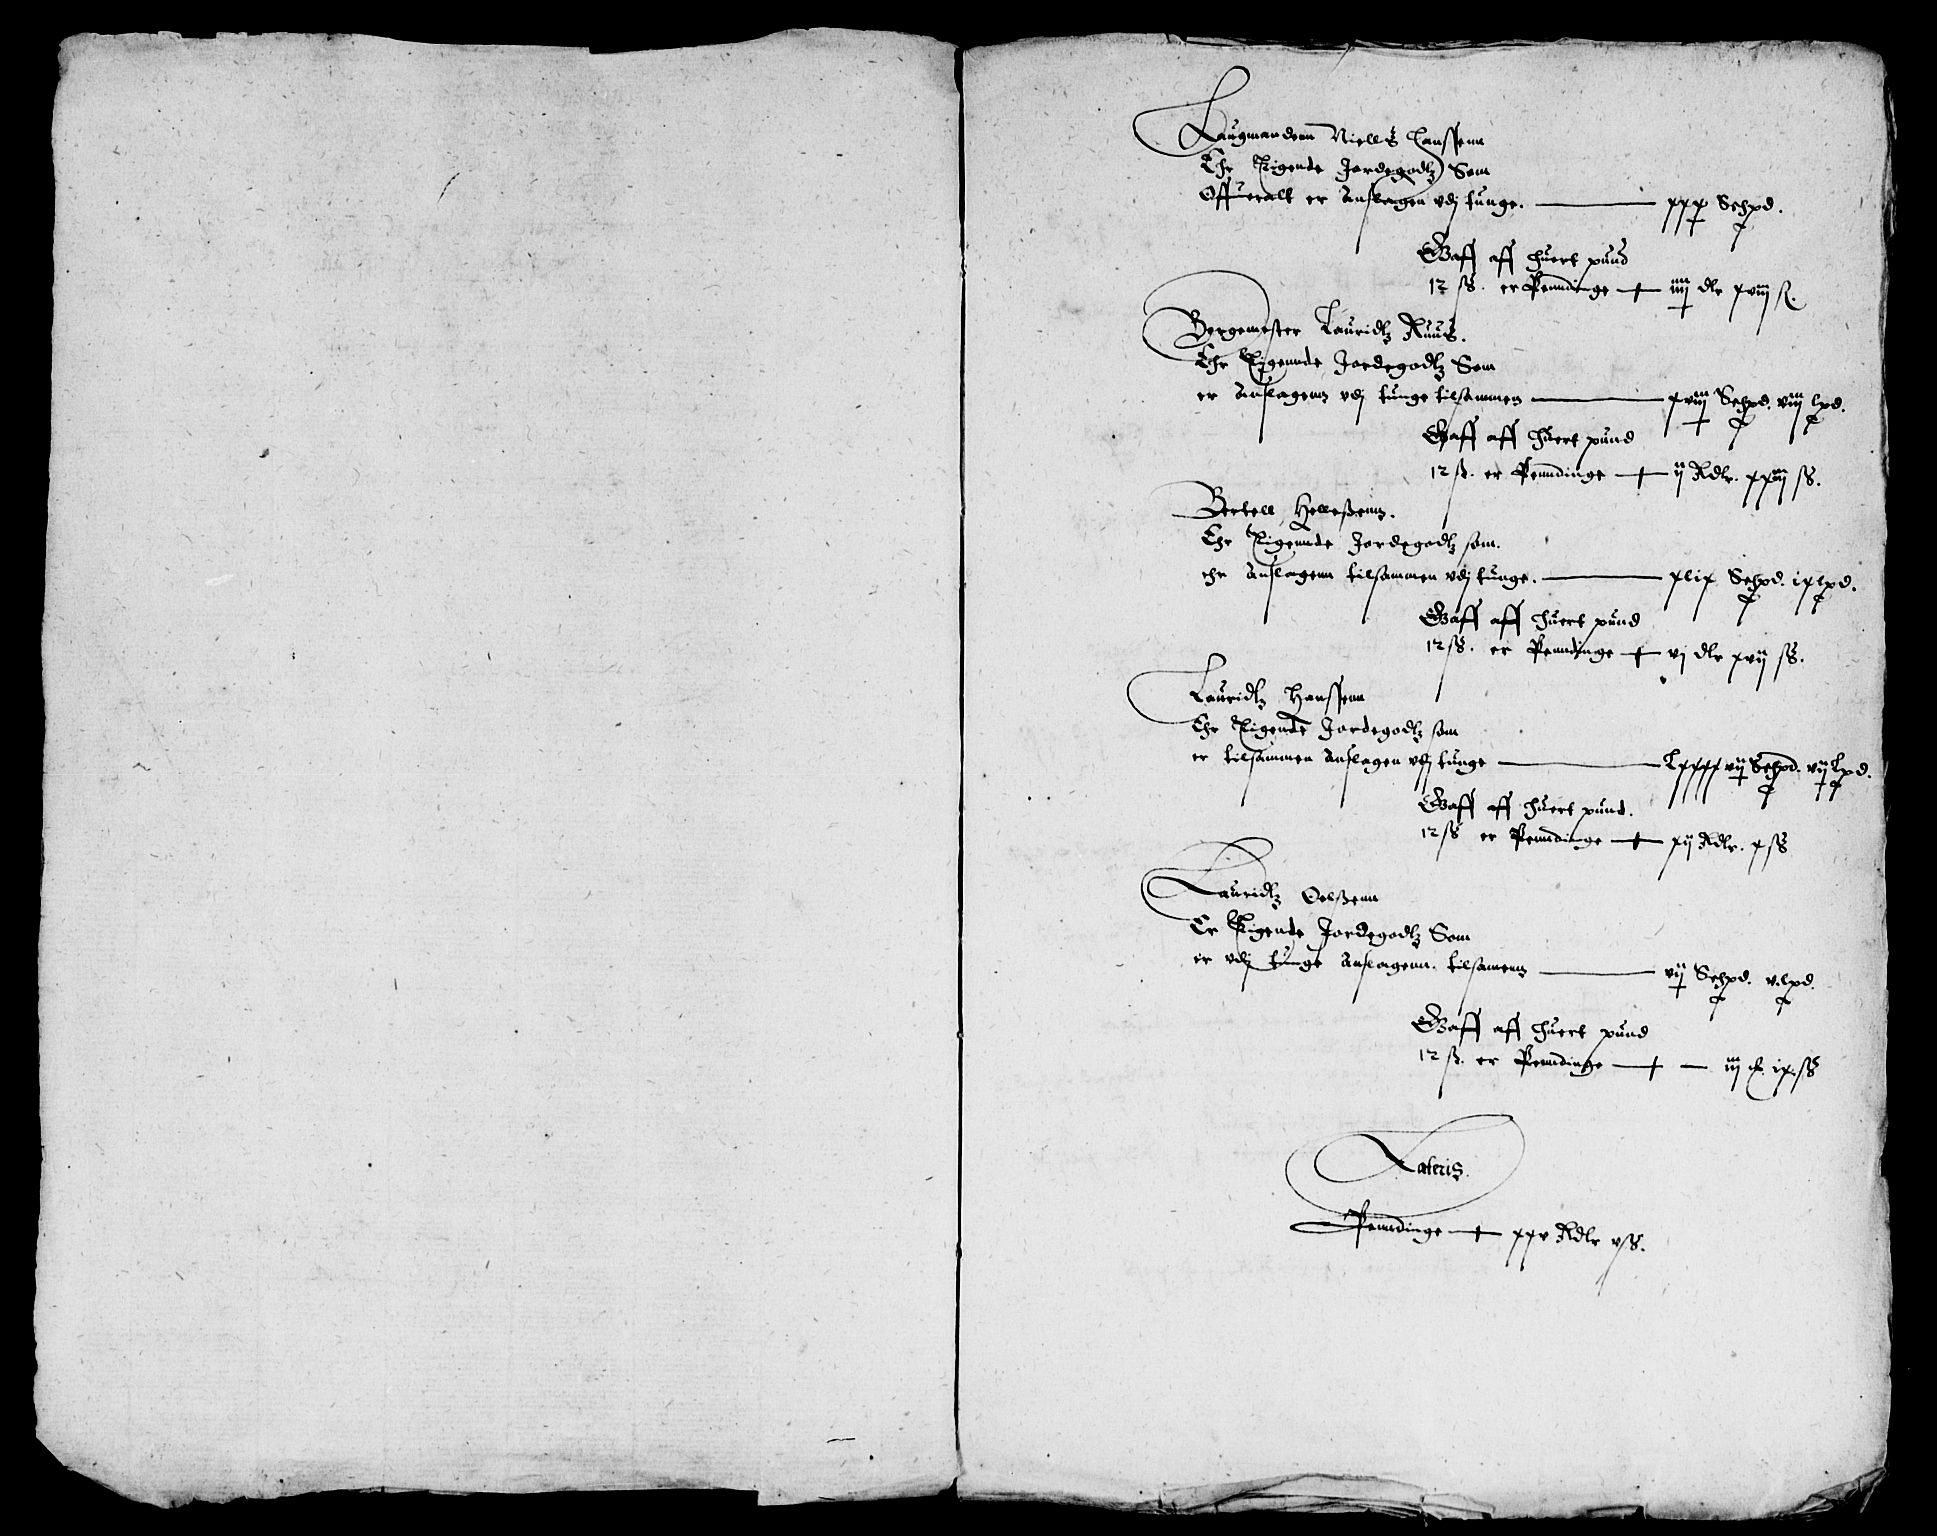 Laugmanden Niells Hanssenn
Ehr Eigende Jordegodtz Som
Offueralt er Anslagen vdj tunge. xxx Schpd.
Gaff aff huert pund
12 ss. er Penndinge iiij dlr xviij s.
Borgemester Lauridtz Ruus.
Ehr Eigennde Jordegodtz Som
er Anslagenn vdj tunge tilsammen xviij Schpd. viij lpd.
Gaff aff huert pund
12 ss. er Penndinge ij Rdlr. xxvij ss.
Bertell Helleßenn.
Ehr Eigennde Jordegodtz som.
ehr Anslagenn tilsammen vdj tunge. xlix Schpd. ix lpd.
Gaff aff huert pund
12 ss. er Penndinge vj dlr xvij ss.
Lauridtz Hanssenn
Ehr Eigende Jordegodtz som
er tilsammen Anslagen vdj tunge Lxxxxvij Schpd. vij lpd.
Gaff aff huert pund.
12 ss er Penndinge xij Rdlr. x ss
Lauridtz Oelßenn
Er Eigende Jordegodtz Som
er vdj tunge Anslagenn. tilsamenn vij Schpd. v. lpd.
Gaff aff huert pund
12 ss. er Penndinge iij ix ss
Lateris.
Penndinge xxv Rdlr v ss.